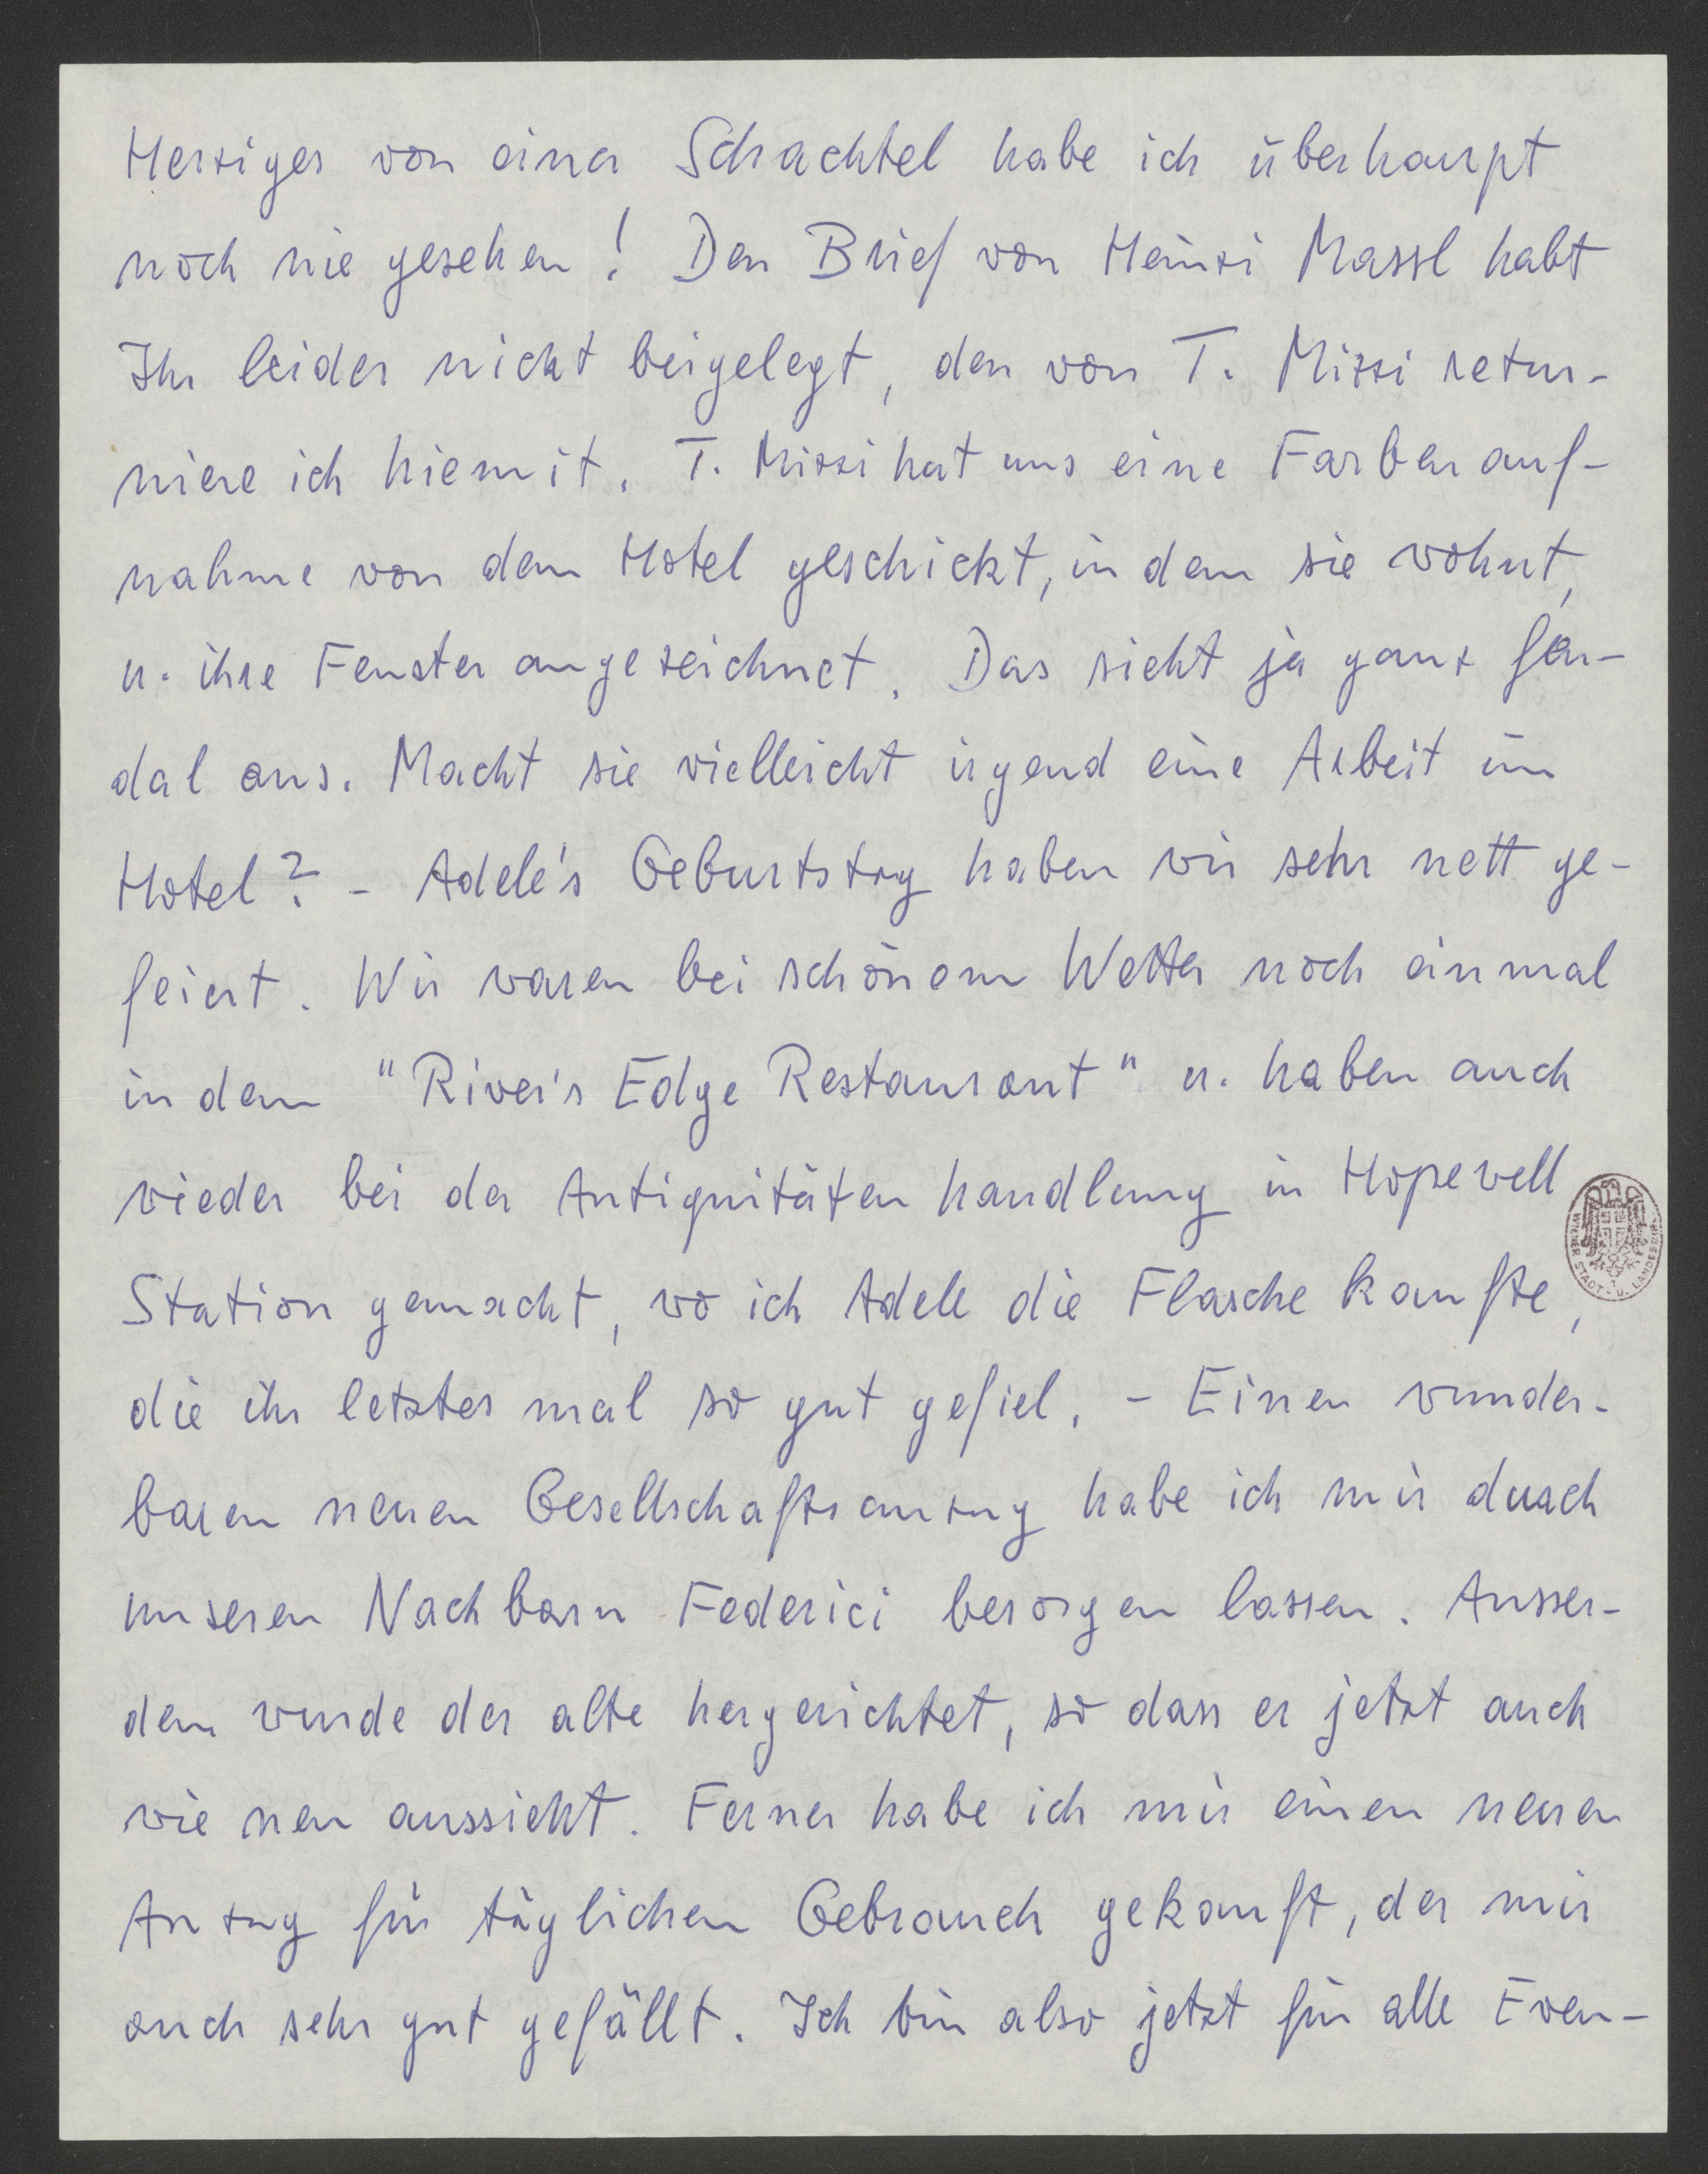 Herziges von einer Schachtel habe ich überhaupt
noch nie gesehen! Den Brief von Heinzi Massl habt
Ihr leider nicht beigelegt, den von T. Mizzi retur-
niere ich hiemit. T. Mizzi hat uns eine Farbenauf-
nahme von dem Hotel geschickt, in dem sie wohnt,
u. ihre Fenster angezeichnet. Das sieht ja ganz feu-
dal aus. Macht sie vielleicht irgend eine Arbeit im
Hotel? - Adele's Geburtstag haben wir sehr nett ge-
feiert. Wir waren bei schönem Wetter noch einmal
in dem "River's Edge Restaurant" u. haben auch
wieder bei der Antiquitätenhandlung in Hopewell
Station gemacht, wo ich Adele die Flasche kaufte,
die ihr letztes mal so gut gefiel. - Einen wunder-
baren neuen Gesellschaftsanzug habe ich mir durch
unseren Nachbarn Federici besorgen lassen. Ausser-
dem wurde der alte hergerichtet, so dass er jetzt auch
wie neu aussieht. Ferner habe ich mir einen neuen
Anzug für täglichen Gebrauch gekauft, der mir
auch sehr gut gefällt. Ich bin also jetzt für alle Even-
WIENER STADT- U. LANDESBIBL.